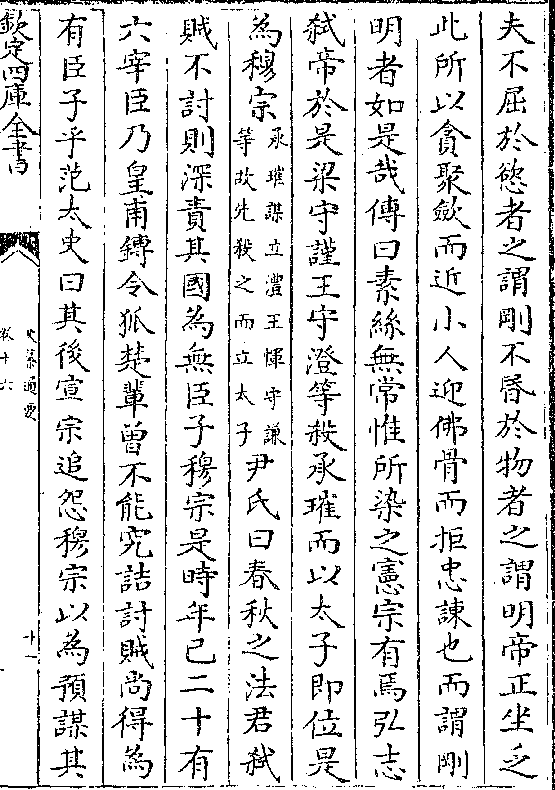 夫不屈於慾者之謂剛不昏於物者之謂明帝正坐乏
此所以貪聚歛而近小人迎佛骨而拒忠諫也而謂剛
明者如是哉傳曰素絲無常惟所染之憲宗有焉弘志
弑帝於是梁守謹王守澄等殺承璀而以太子即位是
為穆宗承璀謀立澧王惲守謙等故先殺之而立太子尹氏曰春秋之法君弑
賊不討則深責其國為無臣子穆宗是時年已二十有
六宰臣乃皇甫鏄令狐楚輩曾不能究詰討賊尚得為
有臣子乎范太史曰其後宣宗追怨穆宗以為預謀其
欽定四庫全書
史纂通要
卷十六
十一